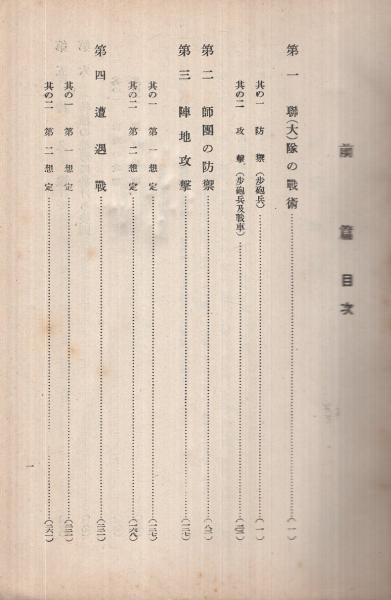 前篇目次
第一 聯(大)隊の戰術……(一)
其の一 防禦(步砲兵)……(一)
其の二 攻擊(步砲兵及戰車)
第二 師團の防禦
第三 陣地攻擊……(一二七)
其の一 第一想定……(一二七)
其の二 第二想定……(一六八)
第四 遭遇戰
其の一 第一想定
其の二 第二想定
一